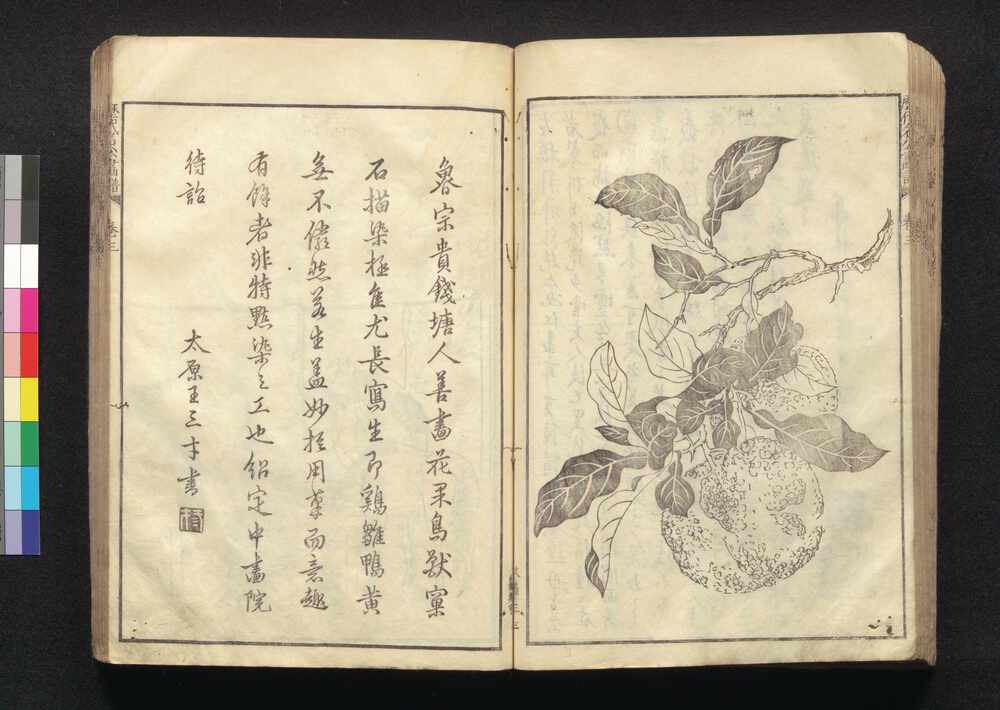 魯宗貴錢塘人善畫花果鳥獸窠
石描染極佳尤長寫生即鷄雛鴨黄
無不儼然若生蓋妙於用筆而意趣
有餘者非特點染之工也紹定中畫院
待詔
太原王三才書
卷三